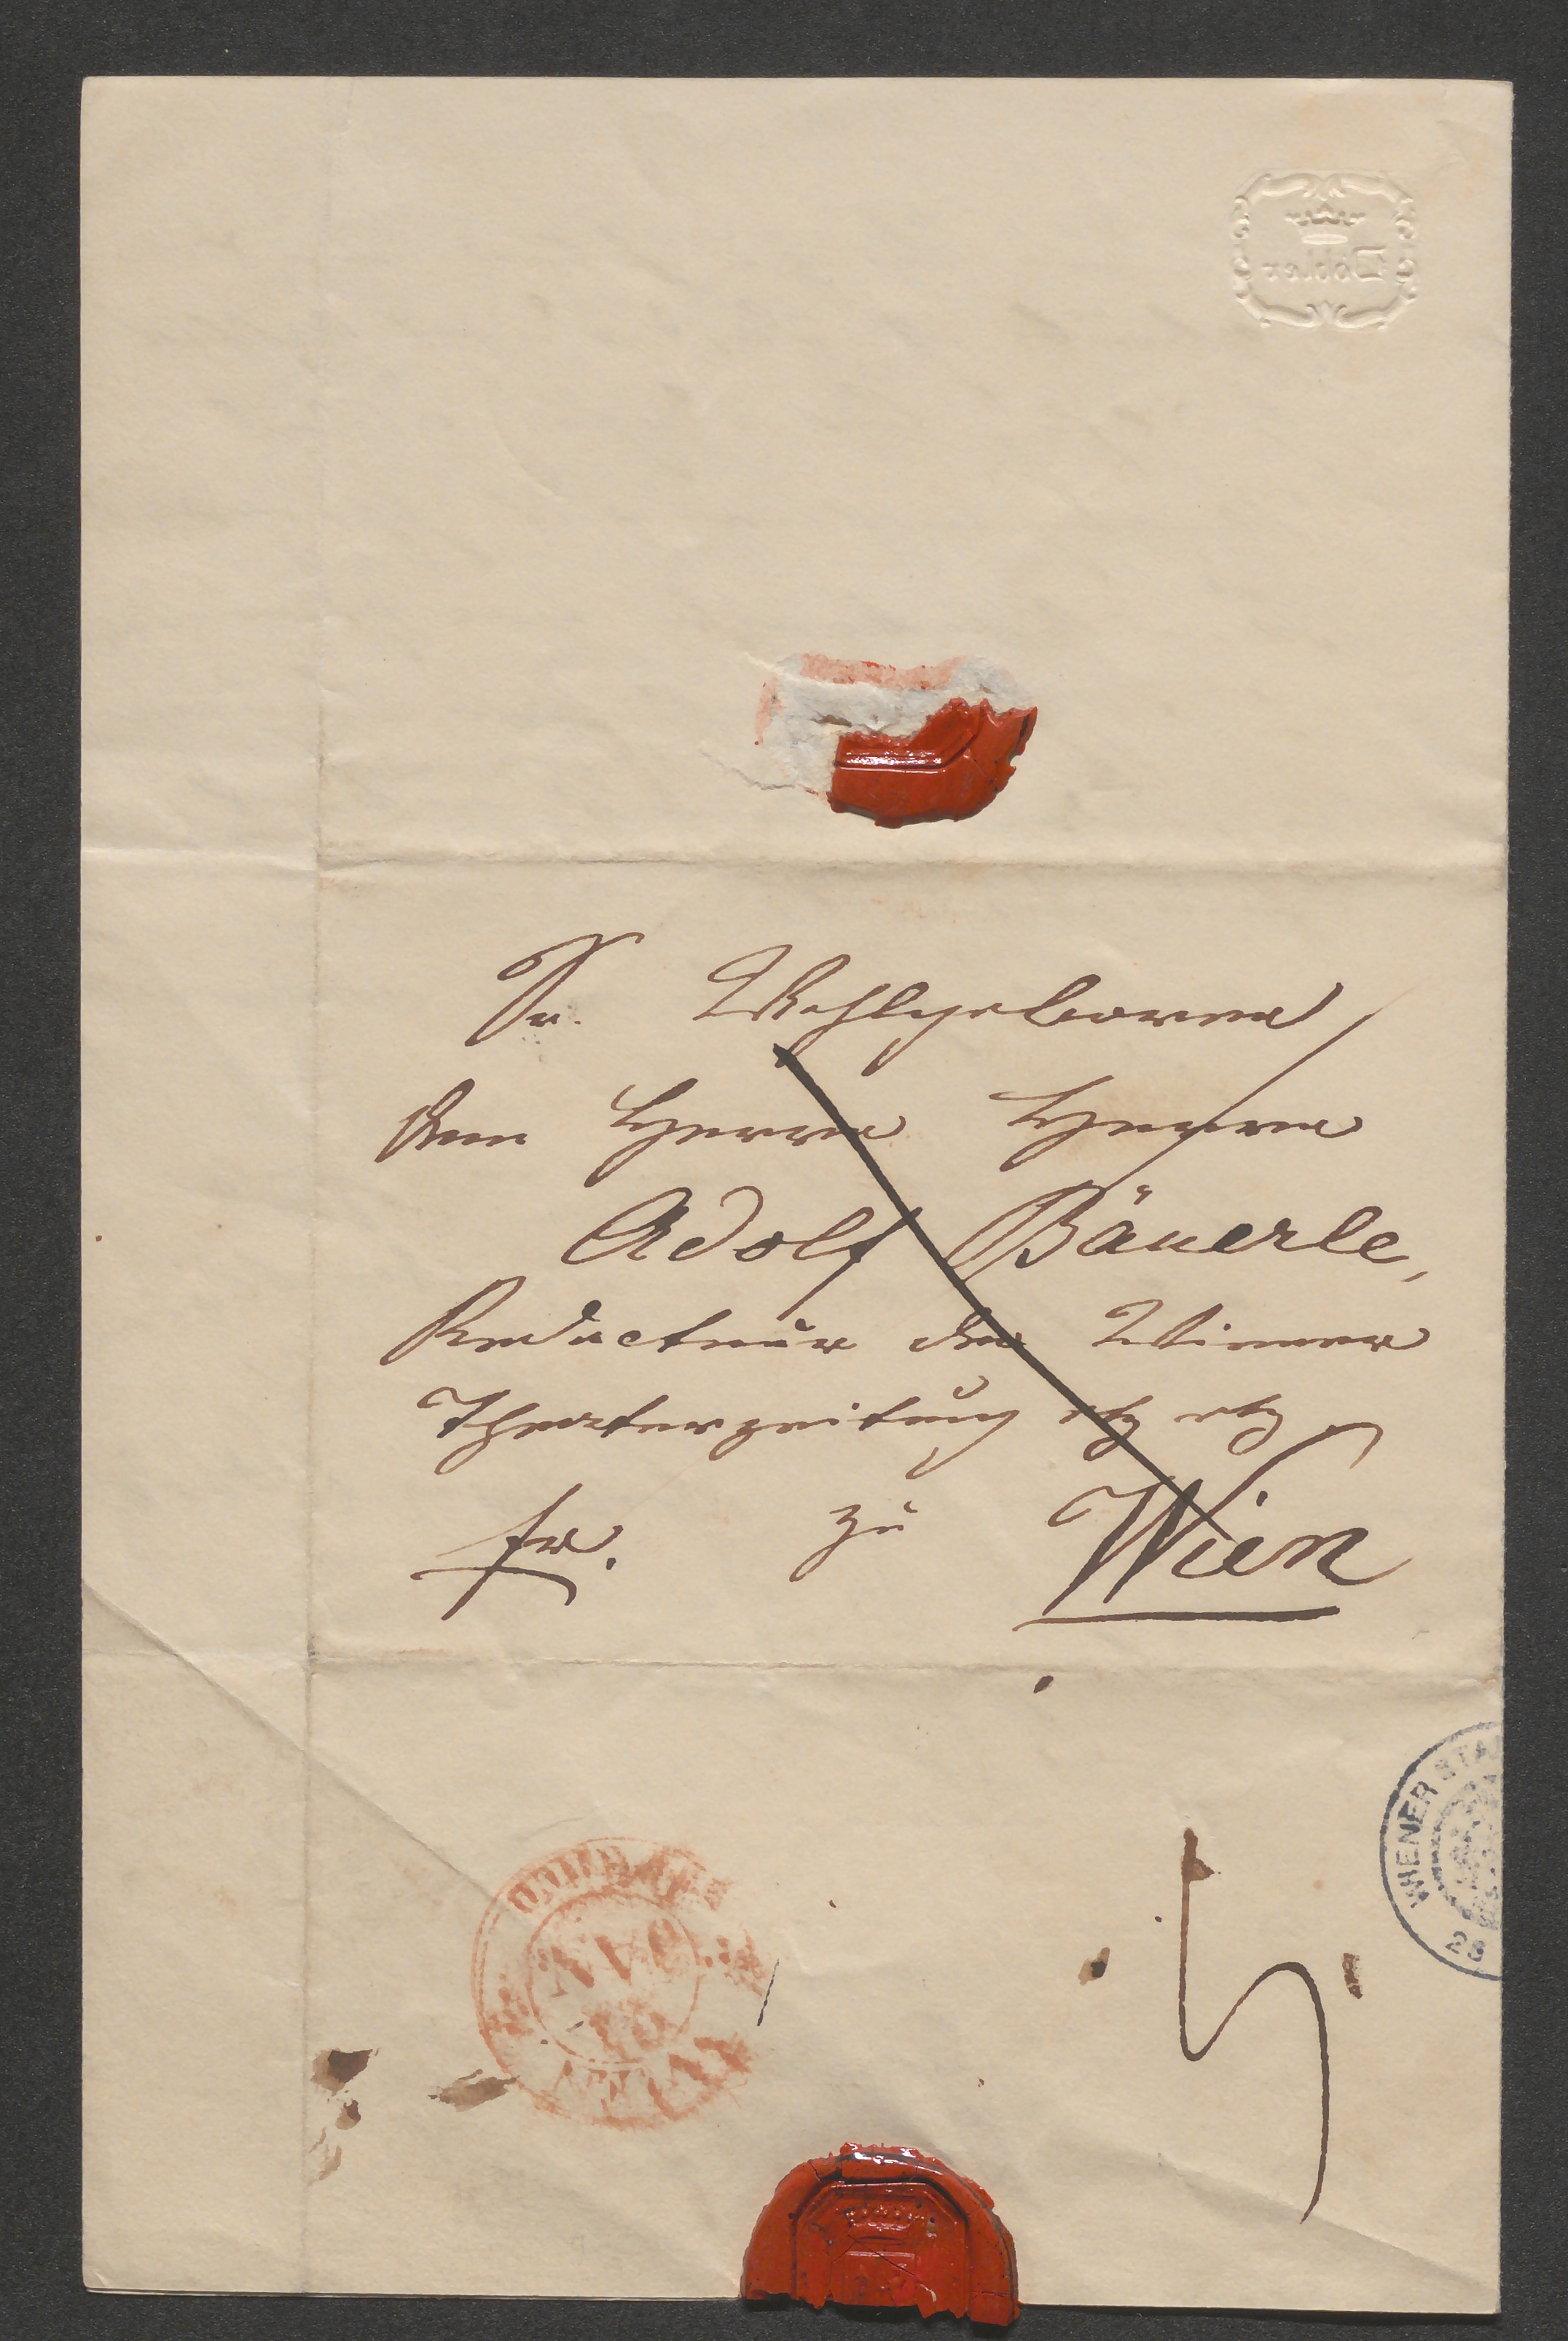 Döbler
Sr. Wohlgeboren
dem Herrn Herrn
Adolf Bäuerle,
Redacteur der Wiener
Theaterzeitung etz etz
fr. zu Wien
WIENER STA
28
WIEN
5